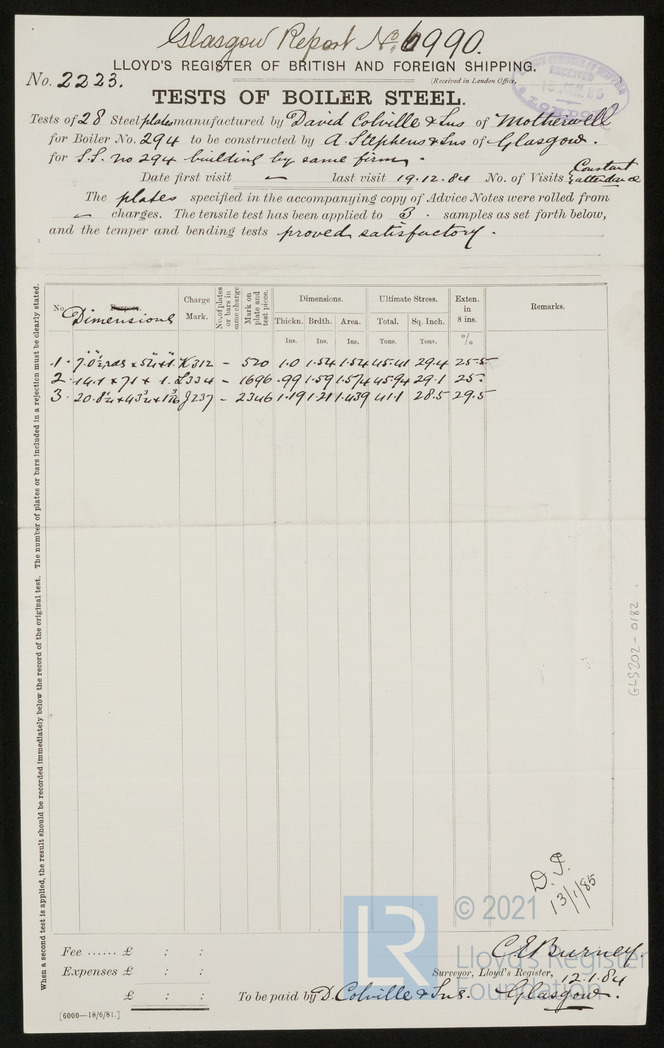 Glasgow Report No 6990.
LLOYD'S REGISTER OF BRITISH AND FOREIGN SHIPPING.
No. 2223.
(Received in London Office,
TESTS OF BOILER STEEL.
Tests of 28 Steel plates manufactured by David Colville & Sns of Motherwell
for Boiler No. 294 to be constructed by A Stephens & Sns of Glasgow.
for S.S. no 294 building by same firm.
Date first visit — last visit 19.12.84 No. of Visits Constant attendance
The plates specified in the accompanying copy of Advice Notes were rolled from
— charges. The tensile test has been applied to 3. samples as set forth below,
and the temper and bending tests proved satisfactory.
No. Dimensions Charge Mark. No. of plates or bars in same charge Mark on plate and test piece. Dimensions. Ultimate Stress. Exten. in 8 ins. Remarks.
Thickn. Brdth. Area. Total. Sq. Inch.
Ins. Ins. Ins. Tons. Tons. %
1. K312 - 520 1.0 1.54 1.54 45.41 29.4 25.5
2. 14.1 x 71 x 1. L334 - 1696 .99 1.59 1.574 45.94 29.1 25.
3. J237 - 2346 1.19 1.21 1.439 41.1 28.5 29.5
When a second test is applied, the result should be recorded immediately below the record of the original test. The number of plates or bars included in a rejection must be clearly stated.
GLS202-0182
13/1/85
© 2021
LR
Lloyd's Register
Foundation
Fee ...... £ : :
Expenses £ : :
£ : :
C E Burney
Surveyor, Lloyd's Register,
12.1.84
To be paid by D. Colville & Sns. Glasgow.
[6000—18/6/81.]